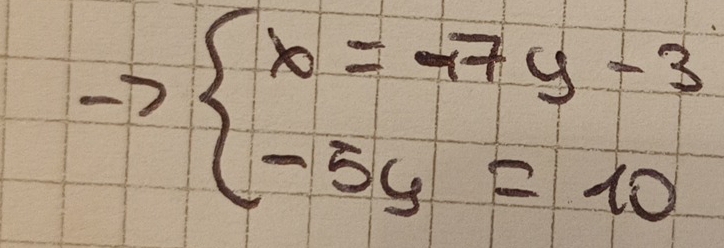 → { x = -7y - 3
-5y = 10